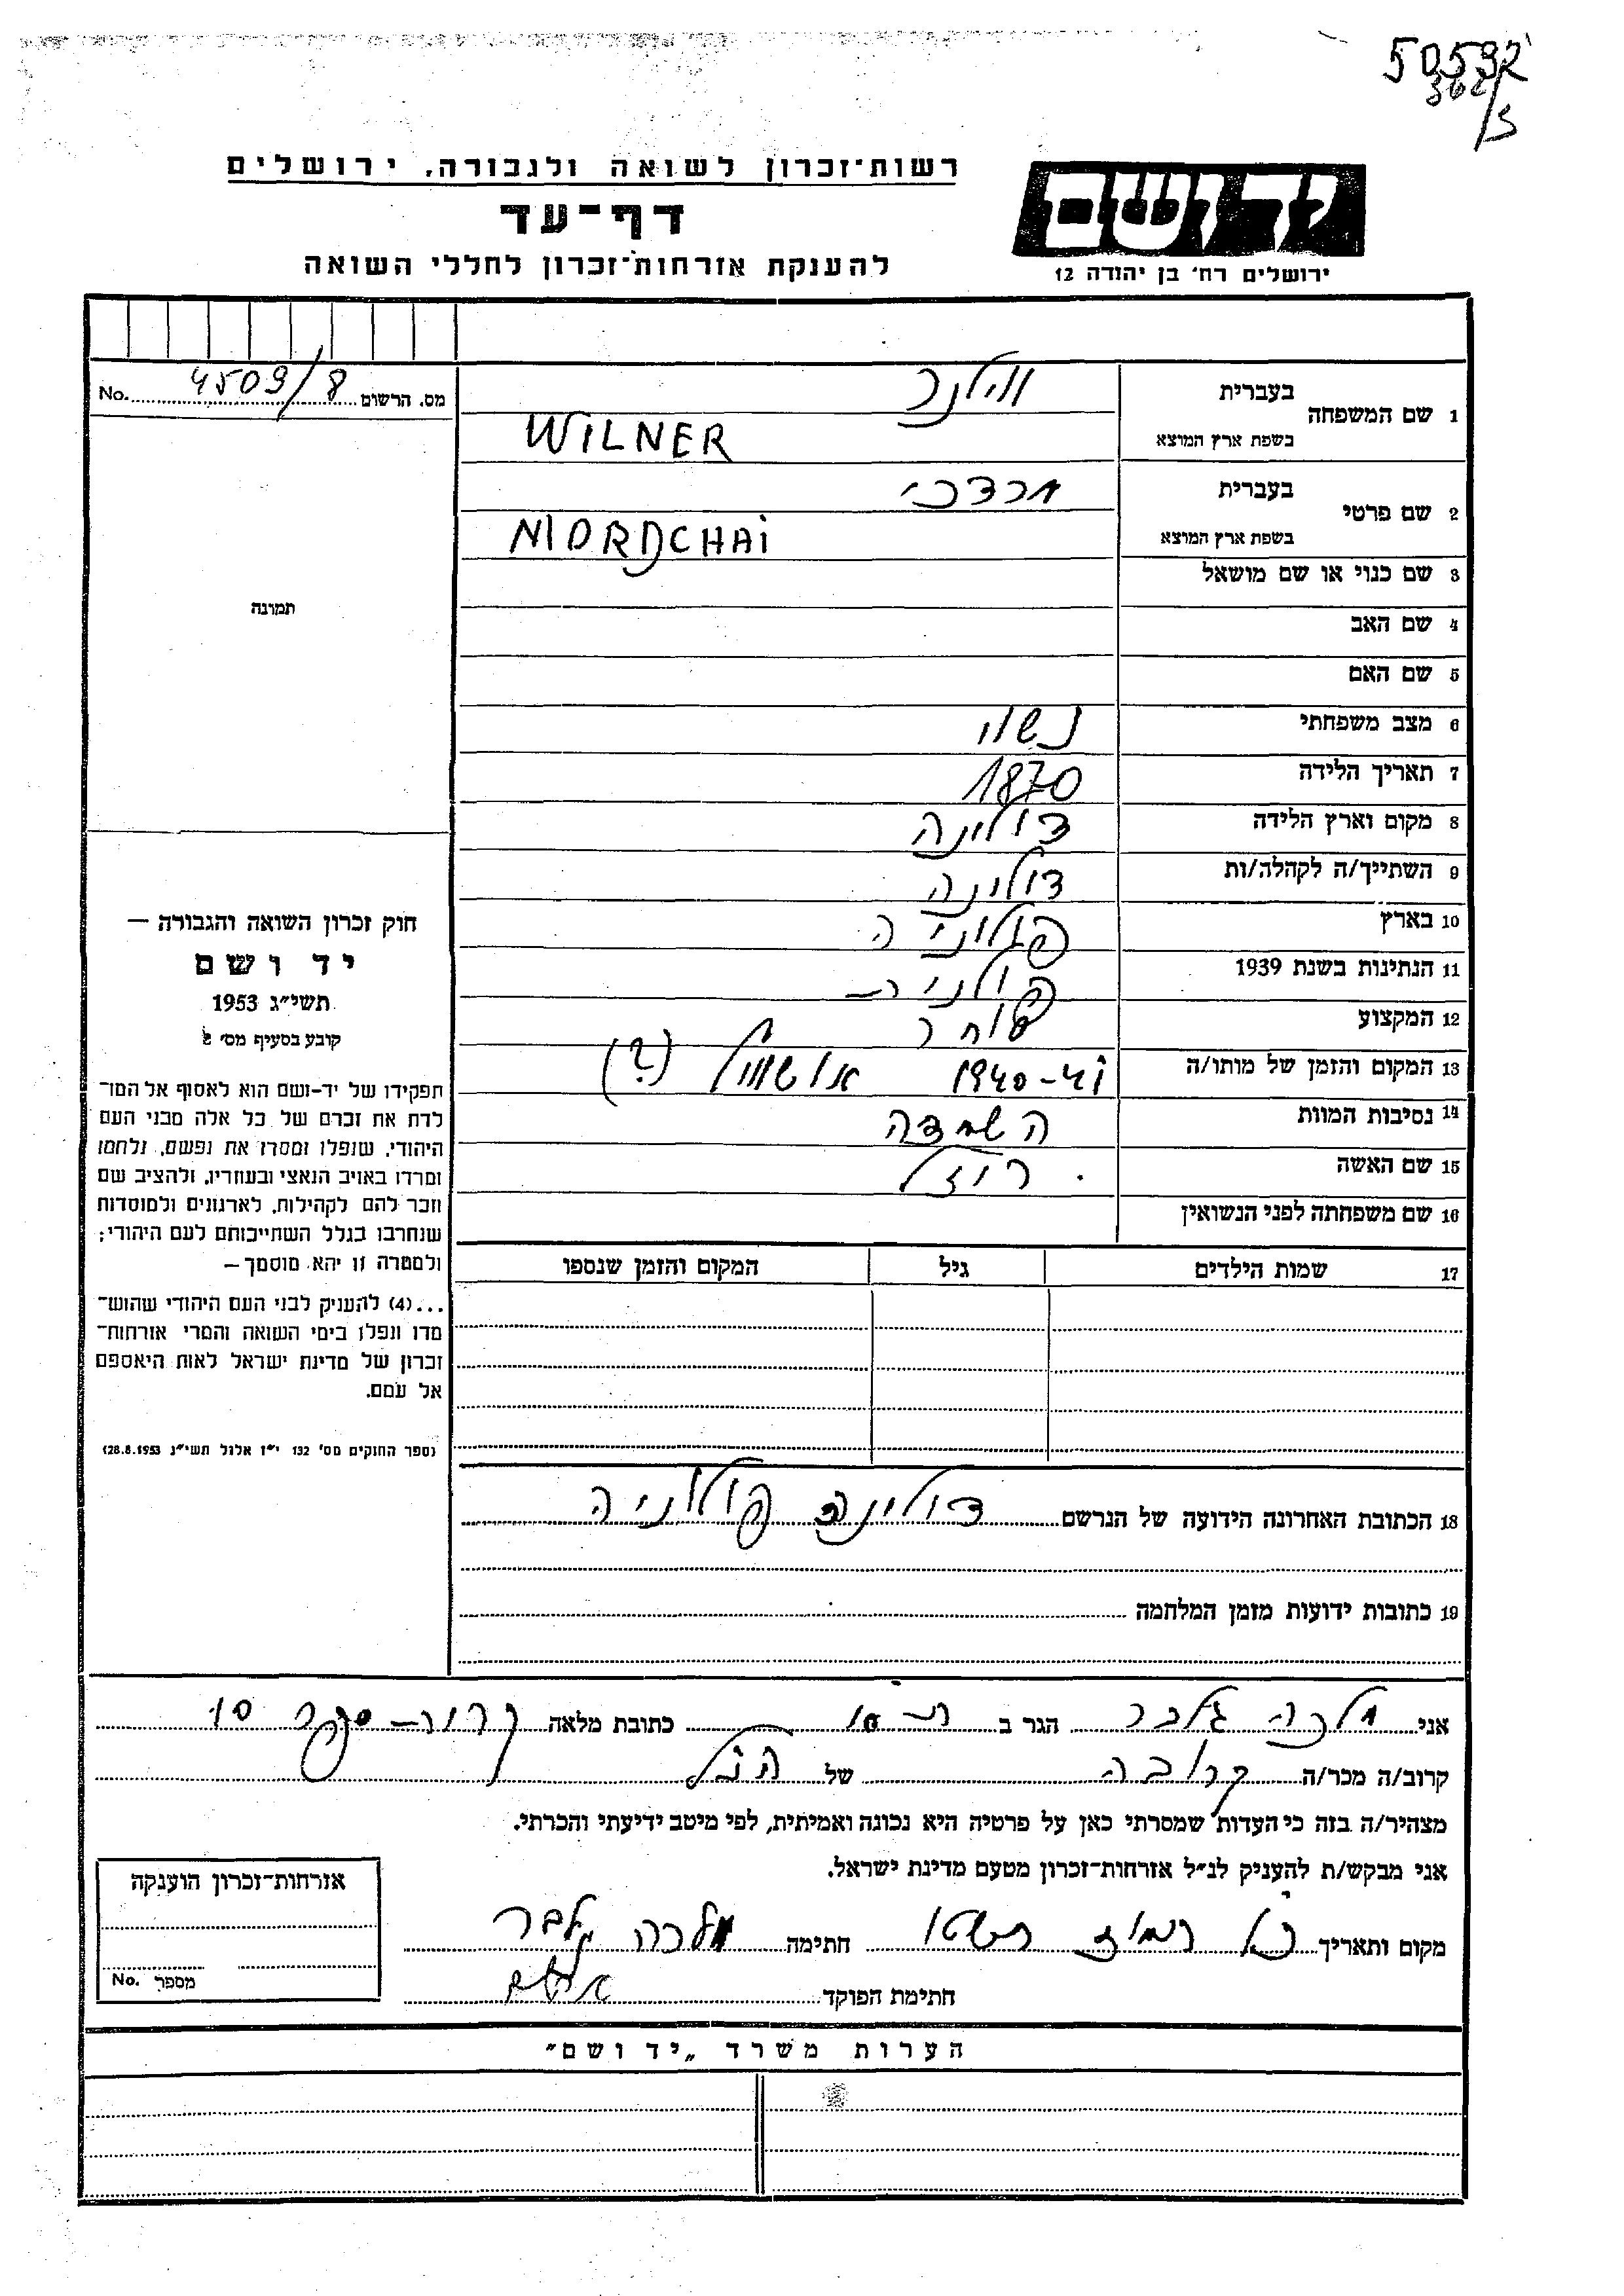 50592
362/3
רשות־זכרון לשואה ולגבורה, ירושלים
דף־עד
להענקת אזרחות־זכרון לחללי השואה
יד ושם
ירושלים רח' בן יהודה 12
מס. הרשום 4509/8 No.
תמונה
1 שם המשפחה
בעברית וילנר
בשפת ארץ המוצא WILNER
2 שם פרטי
בעברית מרדכי
בשפת ארץ המוצא MORDCHAI
3 שם כנוי או שם מושאל
4 שם האב
5 שם האם
6 מצב משפחתי נשוי
7 תאריך הלידה 1870
8 מקום וארץ הלידה דולינה
9 השתייך/ה לקהלה/ות דולינה
10 בארץ פולוניה
11 הנתינות בשנת 1939 פולנית
12 המקצוע סוחר
13 המקום והזמן של מותו/ה 1940-41 אושוויץ (?)
14 נסיבות המוות השמדה
15 שם האשה רוזל
16 שם משפחתה לפני הנשואין
17 שמות הילדים גיל המקום והזמן שנספו
18 הכתובת האחרונה הידועה של הנרשם דולינה פולוניה
19 כתובות ידועות מזמן המלחמה
חוק זכרון השואה והגבורה —
יד ושם
תשי"ג 1953
קובע בסעיף מס' 2
תפקידו של יד-ושם הוא לאסוף אל המו־
לדת את זכרם של כל אלה מבני העם
היהודי, שנפלו ומסרו את נפשם, נלחמו
ומרדו באויב הנאצי ובעוזריו, ולהציב שם
וזכר להם לקהילות, לארגונים ולמוסדות
שנחרבו בגלל השתייכותם לעם היהודי;
ולמטרה זו יהא מוסמך —
...(4) להעניק לבני העם היהודי שהוש־
מדו ונפלו בימי השואה והמרי אזרחות־
זכרון של מדינת ישראל לאות היאספם
אל עמם.
(ספר החוקים מס' 132 י"ז אלול תשי"ג 28.8.1953)
אני מלכה גלבר הגר ב כתובת מלאה 10
קרוב/ה מכר/ה קרובה של הנ"ל
מצהיר/ה בזה כי העדות שמסרתי כאן על פרטיה היא נכונה ואמיתית, לפי מיטב ידיעתי והכרתי.
אני מבקש/ת להעניק לנ"ל אזרחות־זכרון מטעם מדינת ישראל.
מקום ותאריך תמוז תשטו חתימה מלכה גלבר
חתימת הפוקד
אזרחות־זכרון הוענקה
מספר No.
הערות משרד „יד ושם"